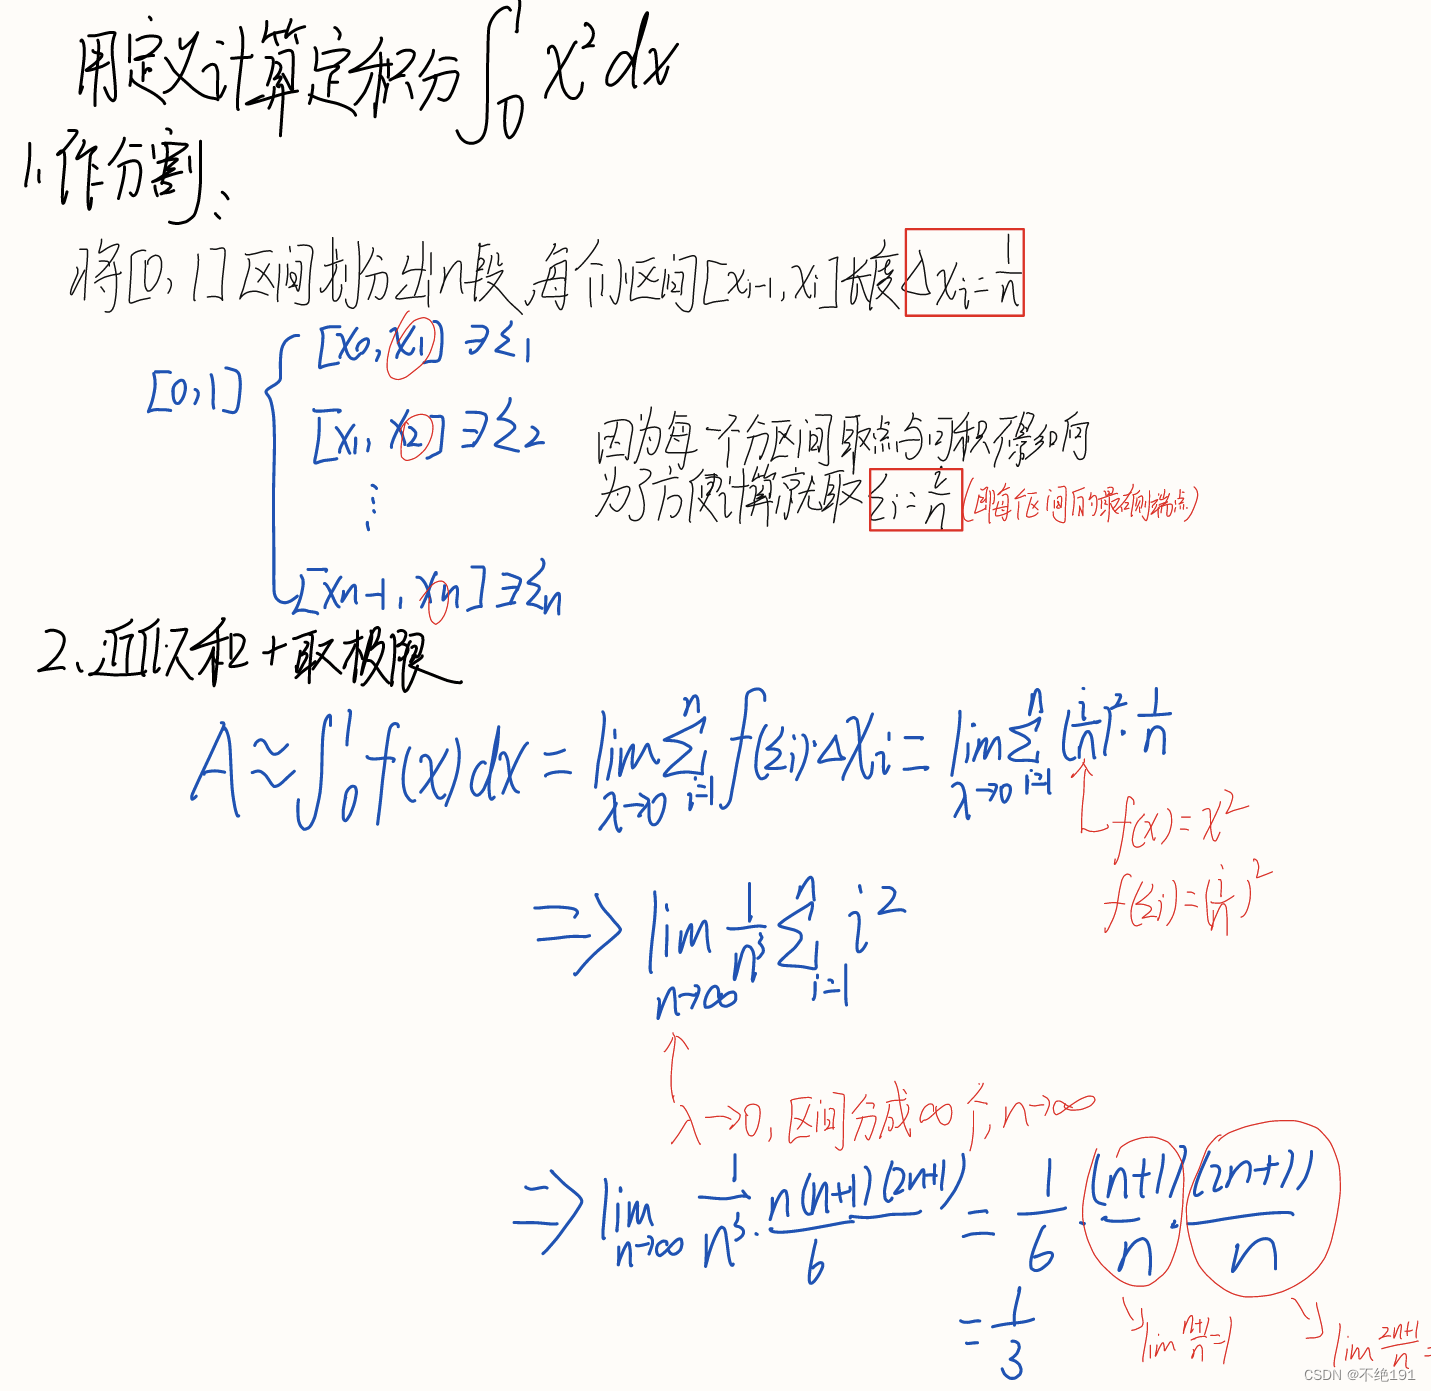 用定义计算定积分∫₀¹ x² dx
1、作分割、
将[0,1]区间划分出n段,每个小区间[xᵢ₋₁, xᵢ]长度Δxᵢ=1/n
[0,1]
[x₀, x₁] ∋ ξ₁
[x₁, x₂] ∋ ξ₂
⋮
[xₙ₋₁, xₙ] ∋ ξₙ
因为每一个分区间取点与可积不影响
为了方便计算就取ξᵢ=i/n (即每个区间的最右侧端点)
2、近似和+取极限
A≈∫₀¹ f(x)dx = lim_{λ→0} Σ_{i=1}^{n} f(ξᵢ)·Δxᵢ = lim_{λ→0} Σ_{i=1}^{n} (i/n)²·1/n
f(x)=x²
f(ξᵢ)=(i/n)²
⇒ lim_{n→∞} 1/n³ Σ_{i=1}^{n} i²
λ→0, 区间分成∞个, n→∞
⇒ lim_{n→∞} 1/n³ · n(n+1)(2n+1)/6 = 1/6 · (n+1)/n · (2n+1)/n
= 1/3
lim (n+1)/n = 1
lim (2n+1)/n =
CSDN @不绝191